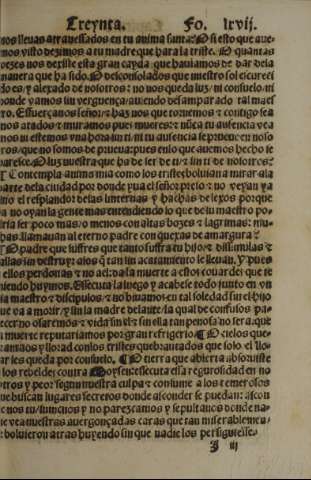 Treynta. Fo. lxvij.
nos lleuas atrauessados en tu anima santa? O si esto que aue-
mos visto dezimos a tu madre que hara la triste. O quantas
vezes nos dexiste esta gran cayda que hauiamos de dar de la
manera que ha sido. O desconsolados que nuestro sol escureci
do es/y alexado de nosotros: no nos queda luz/ni consuelo/ni
donde vamos sin verguença/auiendo desamparado tal maes
tro. Esfuerçanos señor/& haz nos que tornemos & contigo sea
mos atados & muramos pues mueres: & nūca tu ausencia vea
mos ni estemos vna hora sin ti: tu ausencia se prouee: no noso
tros/que no somos de prueua: pues en lo que auemos hecho se
paresce. O luz nuestra que ha de ser de ti: & sin ti de nosotros?
¶ Contempla anima mia como los tristes boluian a mirar a la
parte de la ciudad por donde yua el señor preso: & no veyan ya
sino el resplandor de las linternas y hachas de lexos porque
ya no oyan la gente mas entendiendo lo que de su maestro po-
dria ser poco mas/o menos con altas bozes & lagrimas: mu-
chas. llamauan al eterno padre con quexas de amargura?
¶ O padre que suffres que tanto suffra tu hijo: & dissimulas &
callas sin destruyr a los q̄ tan sin acatamiento le lleuan. Y pues
a ellos perdonas & no a el: da la muerte a estos couardes que te
niendo huymos. Essecuta la luego y acabese todo junto en vn
dia maestro & discipulos: & no biuamos en tal soledad su el hijo
que va a morir/y sin la madre delante/la qual de confusos pa-
rescer no osaremos & vida sin el/& sin ella tan penosa no sera. que
la muerte reputariamos por gran refrigerio. ¶ O cielos que-
brantaos y llorad con los tristes quebrantados que solo el llo-
rar les queda por consuelo. ¶ O tierra que abierta absoruiste
los rebeldes contra Moysen: essecuta essa regurosidad en no
sotros y peor segun nuestra culpa: & consume a los temerosos
que buscan lugares secretos donde asconder se puedan: ascon
de nos tu/sumenos y no parezcamos y sepulta nos donde na-
die vea nuestras auergonçadas caras que tan miserablemen-
te boluieron atras huyendo sin que nadie los persiguiesse.
J iij